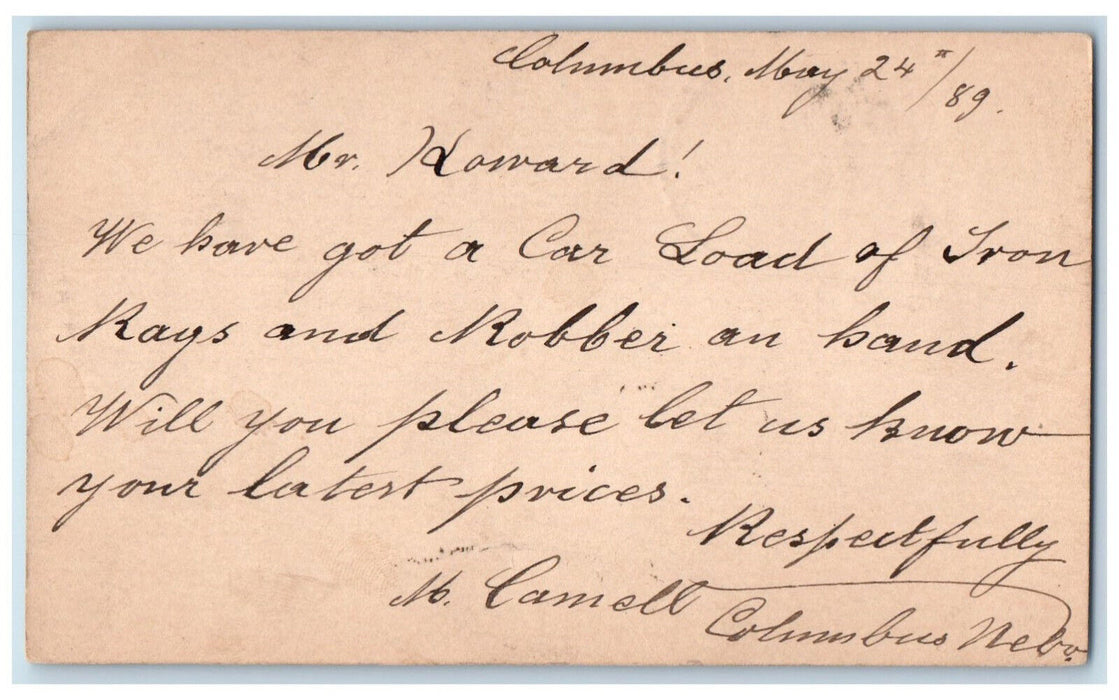 Columbus, May 24th/89.
Mr. Howard!
We have got a Car Load of Iron
Rags and Robber an hand.
Will you please let us know
your latest prices.
Respectfully
M. Camell
Columbus Nebr.